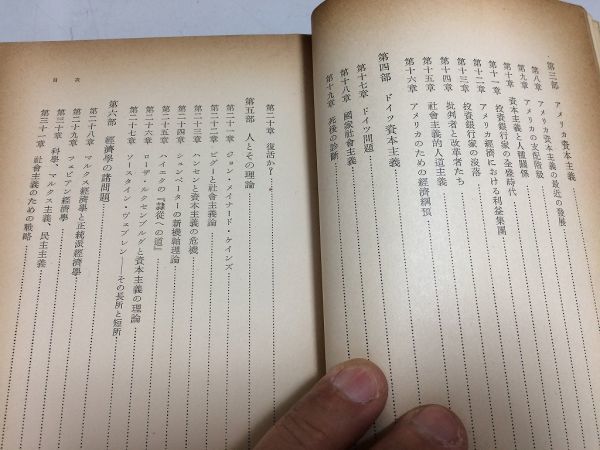 第三部　アメリカ資本主義
第八章　アメリカ資本主義の最近の發展
第九章　アメリカの支配階級
第十章　資本主義と人種關係
第十一章　投資銀行家の全盛時代
第十二章　投資銀行家の沒落
第十三章　アメリカ經濟における利益集團
第十四章　批判者と改革者たち
第十五章　社會主義的人道主義
第十六章　アメリカのための經濟綱領
第四部　ドイツ資本主義
第十七章　ドイツ問題
第十八章　國家社會主義
第十九章　死後の診斷
目次
第二十章　復活か？
第五部　人とその理論
第二十一章　ジョン・メイナード・ケインズ
第二十二章　ピグーと社會主義論
第二十三章　ハンセンと資本主義の危機
第二十四章　シュンペーターの新機軸理論
第二十五章　ハイエクの『隷從への道』
第二十六章　ローザ・ルクセンブルグと資本主義の理論
第二十七章　ソースタイン・ヴェブレン――その長所と短所
第六部　經濟學の諸問題
第二十八章　マルクス經濟學と正統派經濟學
第二十九章　フェビアン經濟學
第三十章　科學、マルクス主義、民主主義
第三十一章　社會主義のための戰略